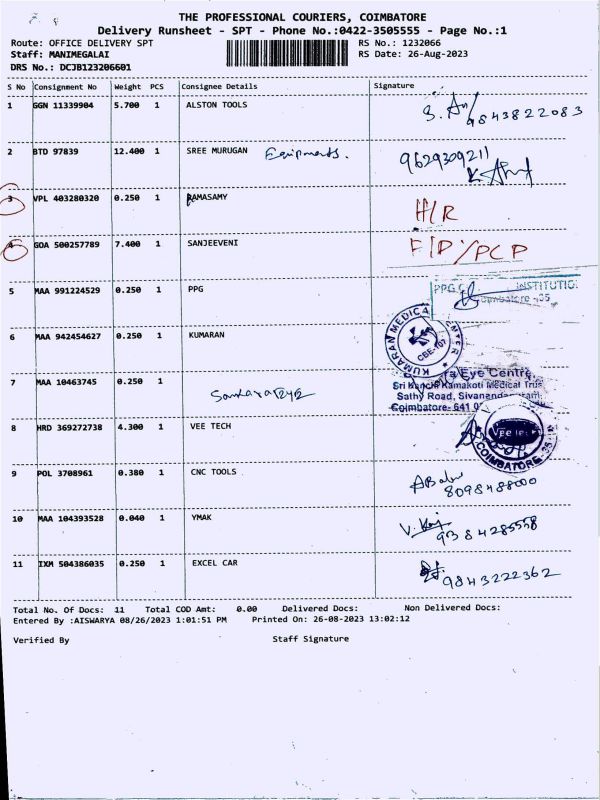 THE PROFESSIONAL COURIERS, COIMBATORE
Delivery Runsheet - SPT - Phone No.:0422-3505555 - Page No.:1
Route: OFFICE DELIVERY SPT RS No.: 1232066
Staff: MANIMEGALAI RS Date: 26-Aug-2023
DRS No.: DCJB123206601
S No Consignment No Weight PCS Consignee Details Signature
1 GGN 11339904 5.700 1 ALSTON TOOLS 9843822083
2 BTD 97839 12.400 1 SREE MURUGAN Equipments. 9629309211
3 VPL 403280320 0.250 1 RAMASAMY H/R
4 GOA 500257789 7.400 1 SANJEEVENI FID/PCP
5 MAA 991224529 0.250 1 PPG PPG INSTITUTIO
Coimbatore -35
6 MAA 942454627 0.250 1 KUMARAN KUMARAN MEDICAL CENTER CBE-107
7 MAA 10463745 0.250 1 Eye Centre,
Sri Kanchi Kamakoti Medical Trus
Sathy Road, Sivanandapuram,
Coimbatore- 641 0
8 HRD 369272738 4.300 1 VEE TECH COIMBATORE-35
9 POL 3708961 0.380 1 CNC TOOLS 8098488000
10 MAA 104393528 0.040 1 YMAK 9384285558
11 IXM 504386035 0.250 1 EXCEL CAR 9843222362
Total No. Of Docs: 11 Total COD Amt: 0.00 Delivered Docs: Non Delivered Docs:
Entered By :AISWARYA 08/26/2023 1:01:51 PM Printed On: 26-08-2023 13:02:12
Verified By Staff Signature